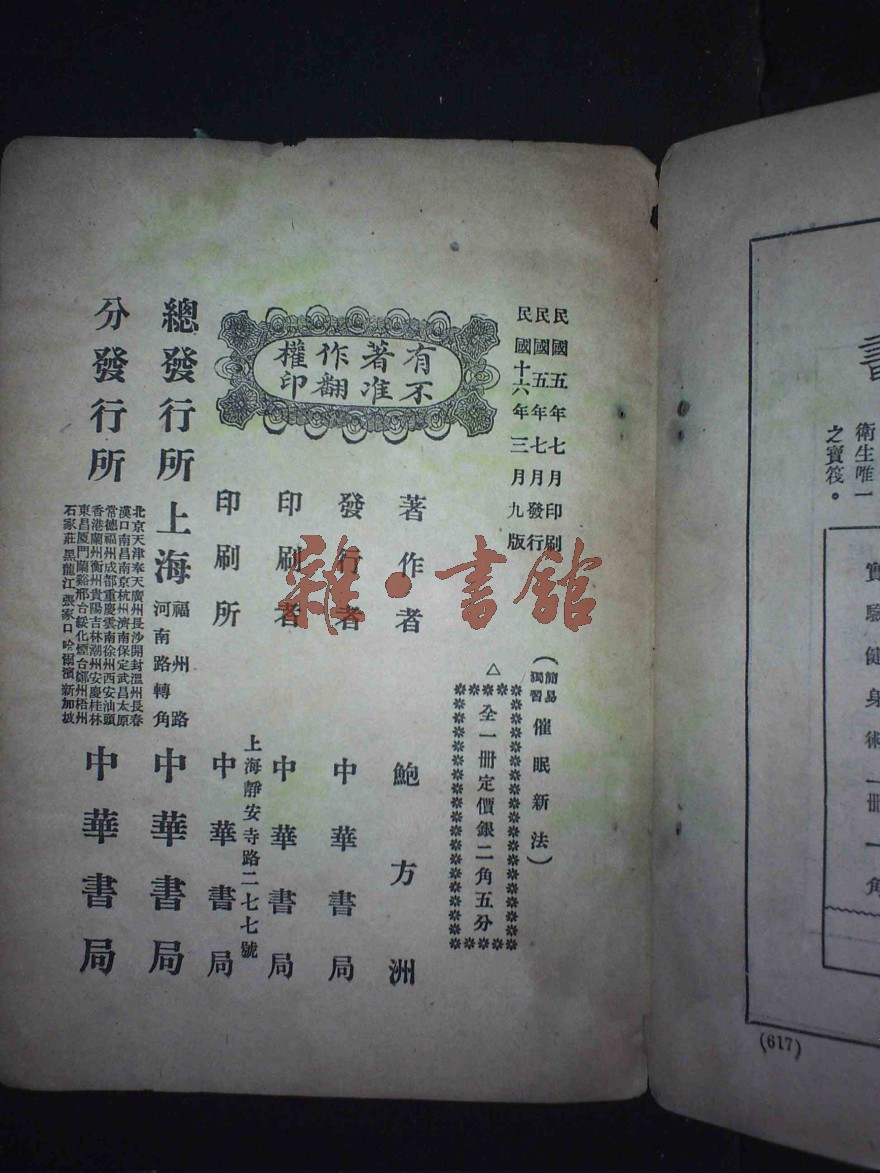 書
衛生唯一
之寶筏。
實驗健身術一冊一角
(617)
民國五年七月印刷
民國五年七月發行
民國十六年三月九版
(簡易獨習催眠新法)
△全一冊定價銀二角五分
有著作權
不准翻印
著作者 鮑方洲
發行者 中華書局
印刷者 中華書局
印刷所 上海靜安寺路二七七號 中華書局
總發行所 上海福州路河南路轉角 中華書局
分發行所
北京天津奉天廣州長沙開封溫州長春
漢口南昌南京杭州濟南保定武昌太原
常德福州成都重慶雲南徐州西安汕頭
香港蘭州衡州貴陽吉林潮州安慶桂林
東昌厦門蘭谿邢台綏化煙台鄭州梧州
石家莊黑龍江張家口哈爾濱新加坡
中華書局
雜·書館